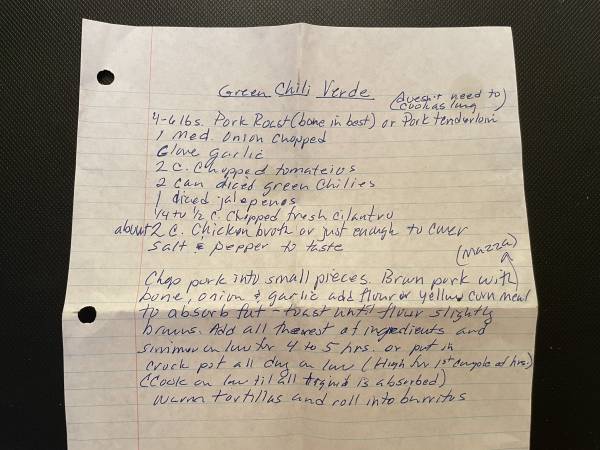 Green Chili Verde
(doesn't need to
cook as long)
4-6 lbs. Pork Roast (bone in best) or Pork tenderloin
1 med. onion chopped
Clove garlic
2 c. chopped tomatoes
2 can diced green chilies
1 diced jalepenos
1/4 to 1/2 c. chipped fresh cilantro
about 2 c. Chicken broth or just enough to cover
salt & pepper to taste
(mazza)
Chop pork into small pieces. Brown pork with
bone, onion & garlic add flour or yellow corn meal
to absorb fat - toast until flour slightly
browns. Add all the rest of ingredients and
simmer on low for 4 to 5 hrs. or put in
crock pot all day on low (High for 1st couple of hrs.)
(Cook on low til all liquid is absorbed)
Warm tortillas and roll into burritos